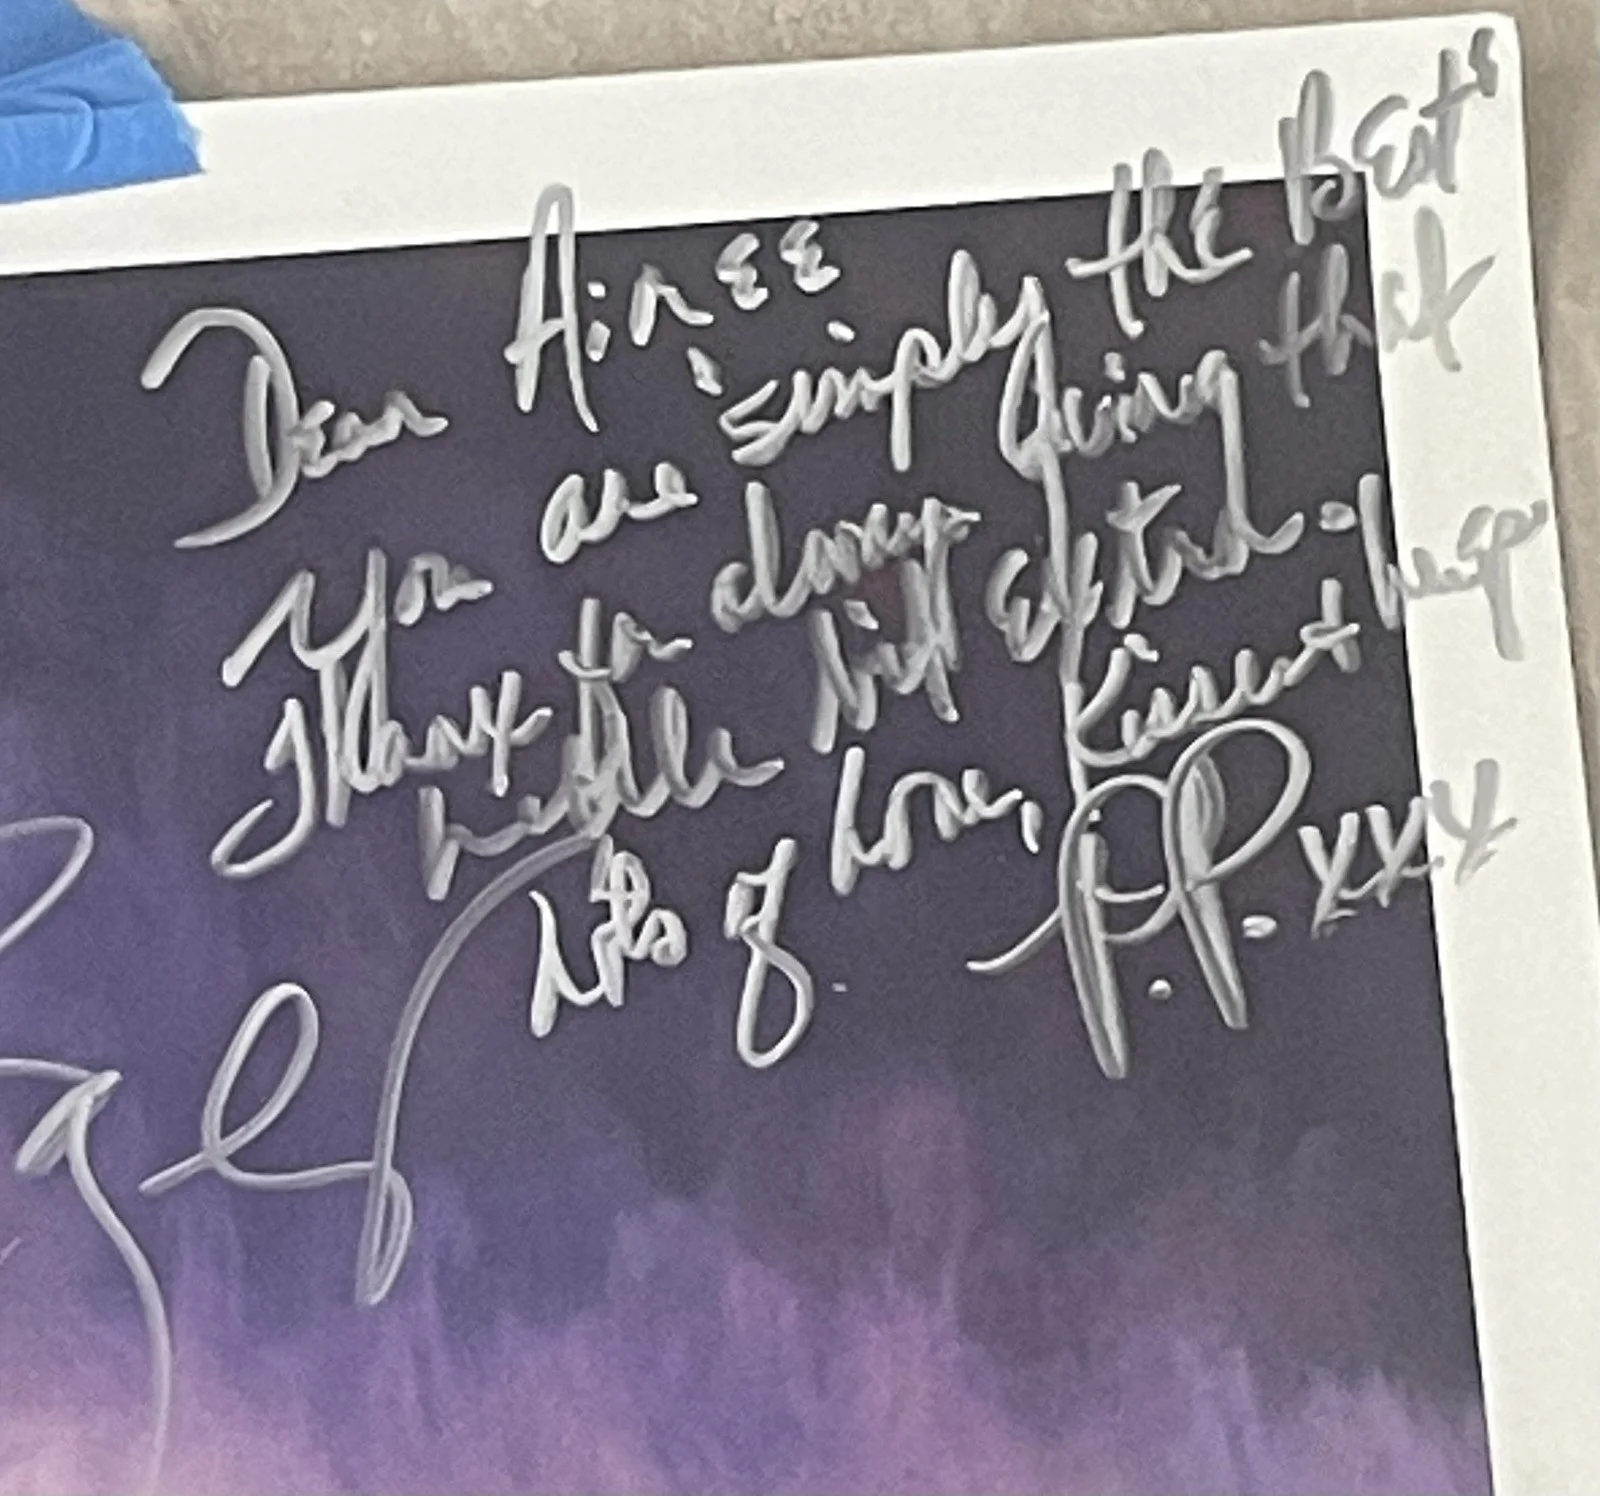 Dear Aimee
You are 'simply the Best'
Thanx for always giving that
little bit Extra.
Lots of Love, Kisses +
P.P. xxx